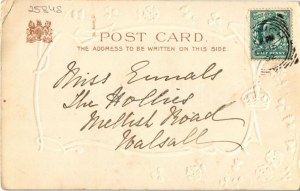 25848
POST CARD.
THE ADDRESS TO BE WRITTEN ON THIS SIDE.
Miss Ennals
The Hollies
Mellish Road
Walsall